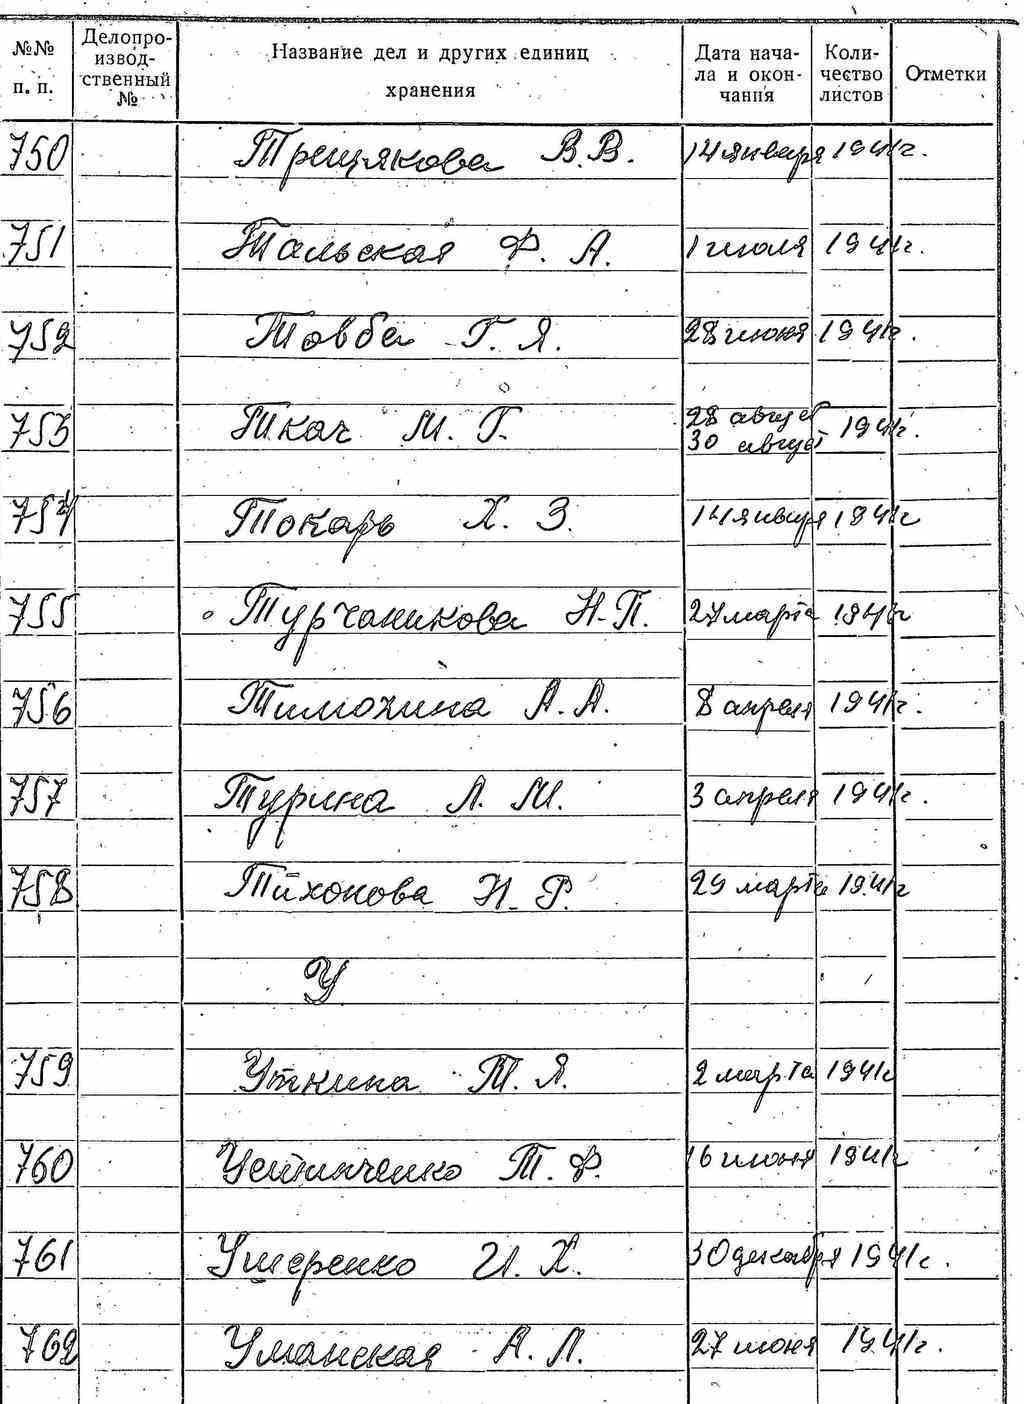 №№ п. п. Делопро-извод-ственный № Название дел и других единиц хранения Дата нача-ла и окон-чания Коли-чество листов Отметки
750 Трещякова В.В. 14 января 1941г.
751 Тальская Ф. А. 1 июля 1941г.
752 Товба Г. Я. 28 июня 1941г.
753 Ткач М. Г. 28 август 30 август 1941г.
754 Токарь Х. З. 14 января 1941г
755 Турчаникова Н.П. 27 марта 1941г
756 Тимохина А.А. 8 апреля 1941г.
757 Турина Л. М. 3 апреля 1941г.
758 Тихонова Н. Р. 29 марта 1941г
У
759 Уткина Т. Я. 2 марта 1941г
760 Устинченко Т. Ф. 16 июня 1941г
761 Ушеренко И. Х. 30 декабря 1941г.
762 Уманская А. Л. 27 июня 1941г.